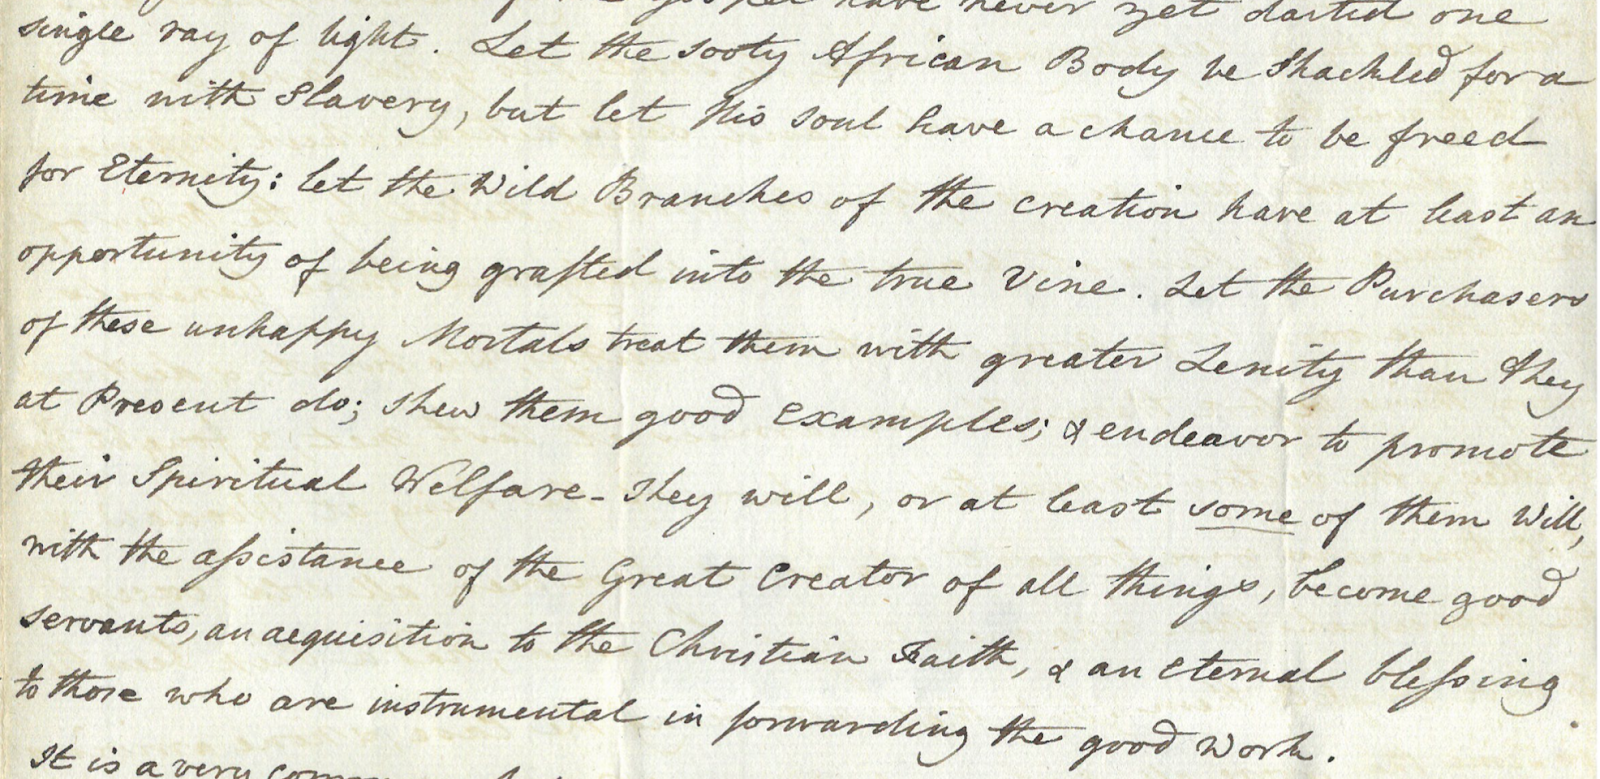 Gospel have never yet darted one
single ray of light. Let the sooty African Body be Shackled for a
time with Slavery, but let his soul have a chance to be freed
for Eternity: let the Wild Branches of the creation have at least an
opportunity of being grafted into the true Vine. Let the Purchasers
of these unhappy Mortals treat them with greater Lenity than they
at Present do; shew them good examples; & endeavor to promote
their Spiritual Welfare - They will, or at least some of them Will,
with the aſsistance of the Great Creator of all things, become good
servants, an acquisition to the Christian Faith, & an eternal bleſsing
to those who are instrumental in forwarding the good Work.
It is a very